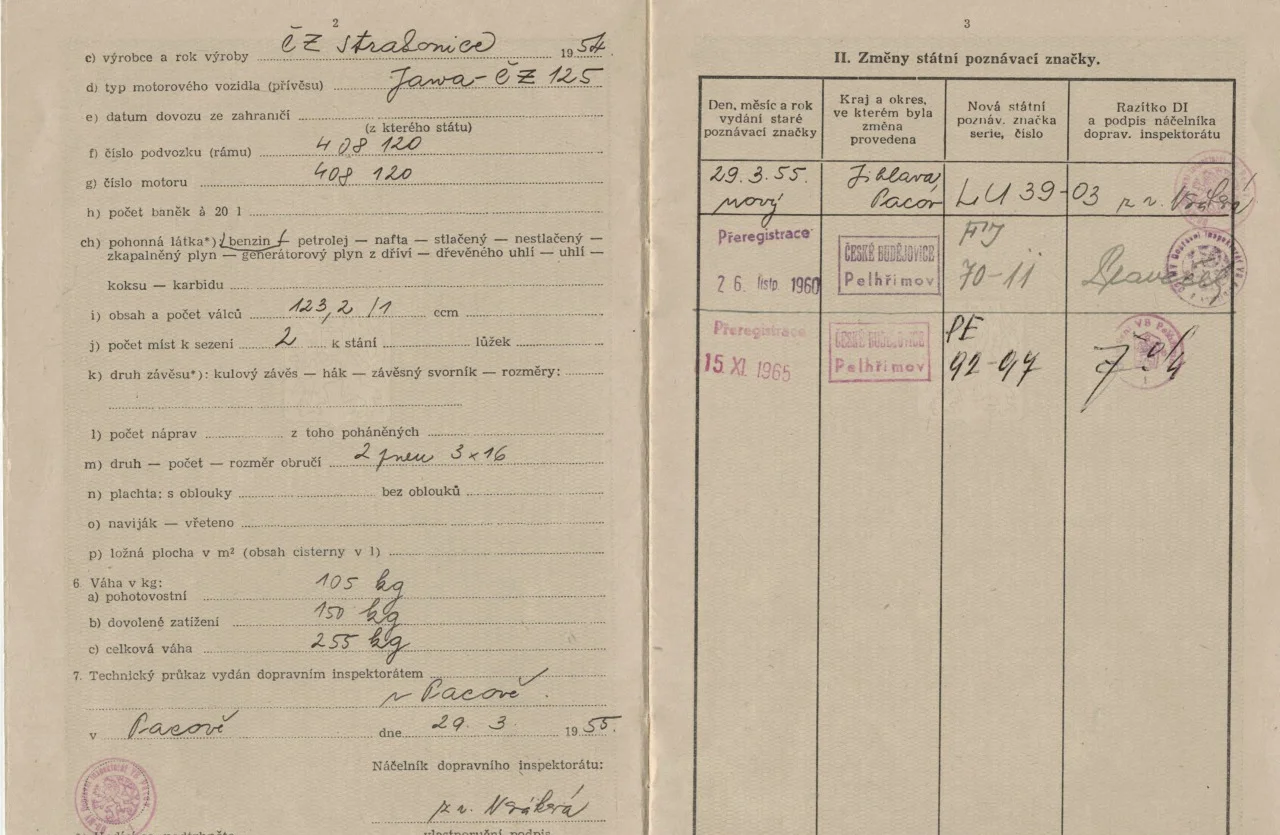 2
c) výrobce a rok výroby ČZ Strakonice 1954
d) typ motorového vozidla (přívěsu) Jawa-ČZ 125
e) datum dovozu ze zahraničí
(z kterého státu)
f) číslo podvozku (rámu) 408 120
g) číslo motoru 408 120
h) počet baněk à 20 l
ch) pohonná látka*) benzin — petrolej — nafta — stlačený — nestlačený —
zkapalněný plyn — generátorový plyn z dříví — dřevěného uhlí — uhlí —
koksu — karbidu
i) obsah a počet válců 123,2 /1 ccm
j) počet míst k sezení 2 k stání lůžek
k) druh závěsu*): kulový závěs — hák — závěsný svorník — rozměry:
l) počet náprav z toho poháněných
m) druh — počet — rozměr obručí 2 pneu 3x16
n) plachta: s oblouky bez oblouků
o) naviják — vřeteno
p) ložná plocha v m² (obsah cisterny v l)
6. Váha v kg:
a) pohotovostní 105 kg
b) dovolené zatížení 150 kg
c) celková váha 255 kg
7. Technický průkaz vydán dopravním inspektorátem
v Pacově.
v Pacově dne 29. 3. 1955.
Náčelník dopravního inspektorátu:
vlastnoruční podpis
3
II. Změny státní poznávací značky.
Den, měsíc a rok
vydání staré
poznávací značky
Kraj a okres,
ve kterém byla
změna
provedena
Nová státní
poznáv. značka
serie, číslo
Razítko DI
a podpis náčelníka
doprav. inspektorátu
29. 3. 55.
nový
Jihlava
Pacov
LU 39-03
Přeregistrace
26. listp. 1960
ČESKÉ BUDĚJOVICE
Pelhřimov
70-11
Přeregistrace
15. XI. 1965
ČESKÉ BUDĚJOVICE
Pelhřimov
PE
92-97